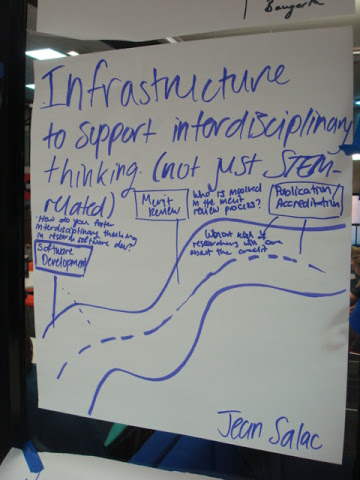 Bangert
Infrastructure
to support interdisciplinary
thinking (not just STEM-
related)
How do you foster
interdisciplinary thinking
in research software dev?
Software
Development
Merit
Review
Who is involved
in the merit
review process?
Publication/
Accreditation
What kind of
researchers will care
about the credit
Jean Salac